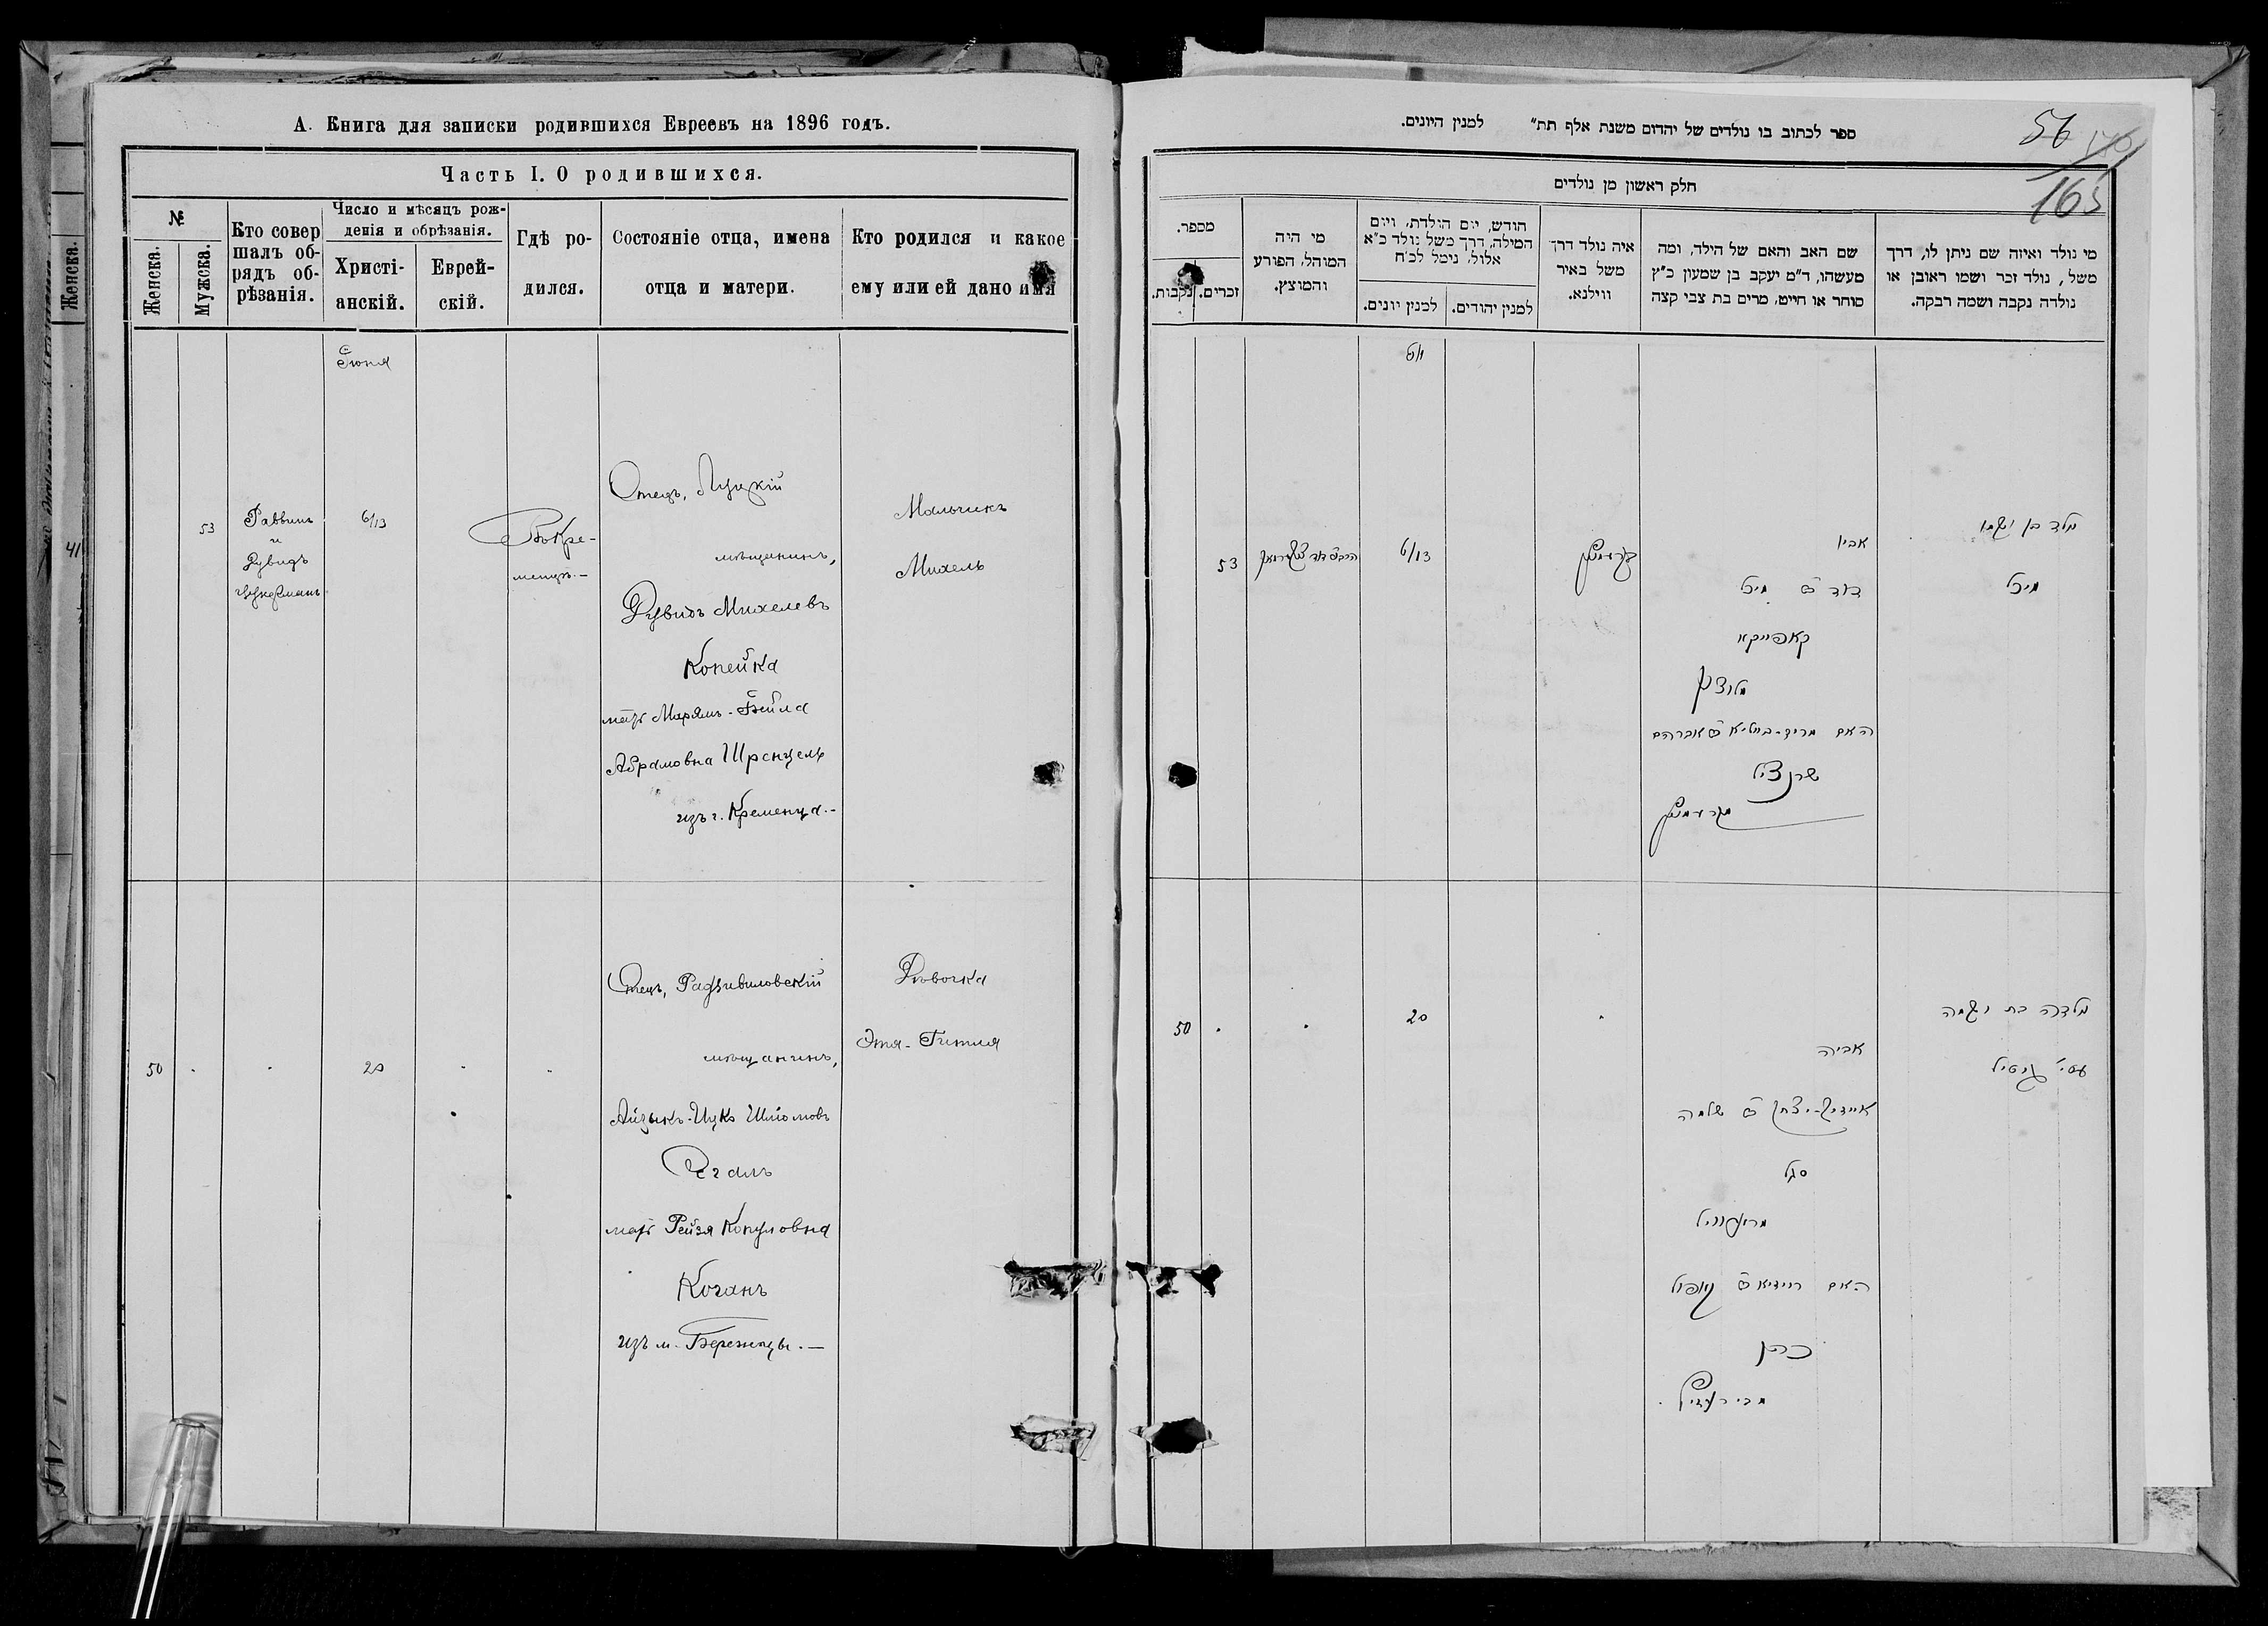 А. Книга для записки родившихся Евреевъ на 1896 годъ.
Часть I. О родившихся.
№
Женска.
Мужска.
Кто совер
шалъ об-
рядъ об-
рѣзанія.
Число и мѣсяцъ рож-
денія и обрѣзанія.
Христі-
анскій.
Еврей-
скій.
Гдѣ ро-
дился.
Состояніе отца, имена
отца и матери.
Кто родился и какое
ему или ей дано имя
Женска.
41
Іюня
53
Раввинъ
и
Дувидъ
6/13
Въ Кре-
менцѣ.—
Отецъ, Луцкій
мѣщанинъ,
Дувидъ Михелевъ
Копейка
мать Марямъ-Бейла
Абрамовна Шренцель
изъ г. Кременца.—
Мальчикъ
Михель
50
20
Отецъ, Радзивиловскій
мѣщанинъ,
Айзыкъ-Ицко Шліомовъ
Сегалъ
мать Рейзя Копуловна
Коганъ
изъ м. Бережецъ.—
Дѣвочка
Этя-Гитля
ספר לכתוב בו נולדים של יהדום משנת אלף תת״ למנין היונים.
56
165
חלק ראשון מן נולדים
מספר.
נקבות.
זכרים.
מי היה
המוהל, הפורע
והמוצץ.
חודש, יום הולדת, ויום
המילה, דרך משל נולד כ״א
אלול, נימל לכ״ח
למנין יונים.
למנין יהודים.
איה נולד דרך
משל באיר
ווילנא.
שם האב והאם של הילד, ומה
מעשהו, ד״מ יעקב בן שמעון כ״ץ
סוחר או חייט, מרים בת צבי קצה
מי נולד ואיזה שם ניתן לו, דרך
משל, נולד זכר ושמו ראובן או
נולדה נקבה ושמה רבקה.
יוני
53
6/13
נולד בן ושמו
מיכל
אביו
דוד ב׳ מיכל
קאפייקא
מלוצק
האם מרים-ביילא ב׳ אברהם
שרנציל
50
20
נולדה בת ושמה
עטי׳ גיטיל
אביה
אייזיק-יצחק ב׳ שלמה
סגל
האם רייזיא ב׳ קאפיל
כהן